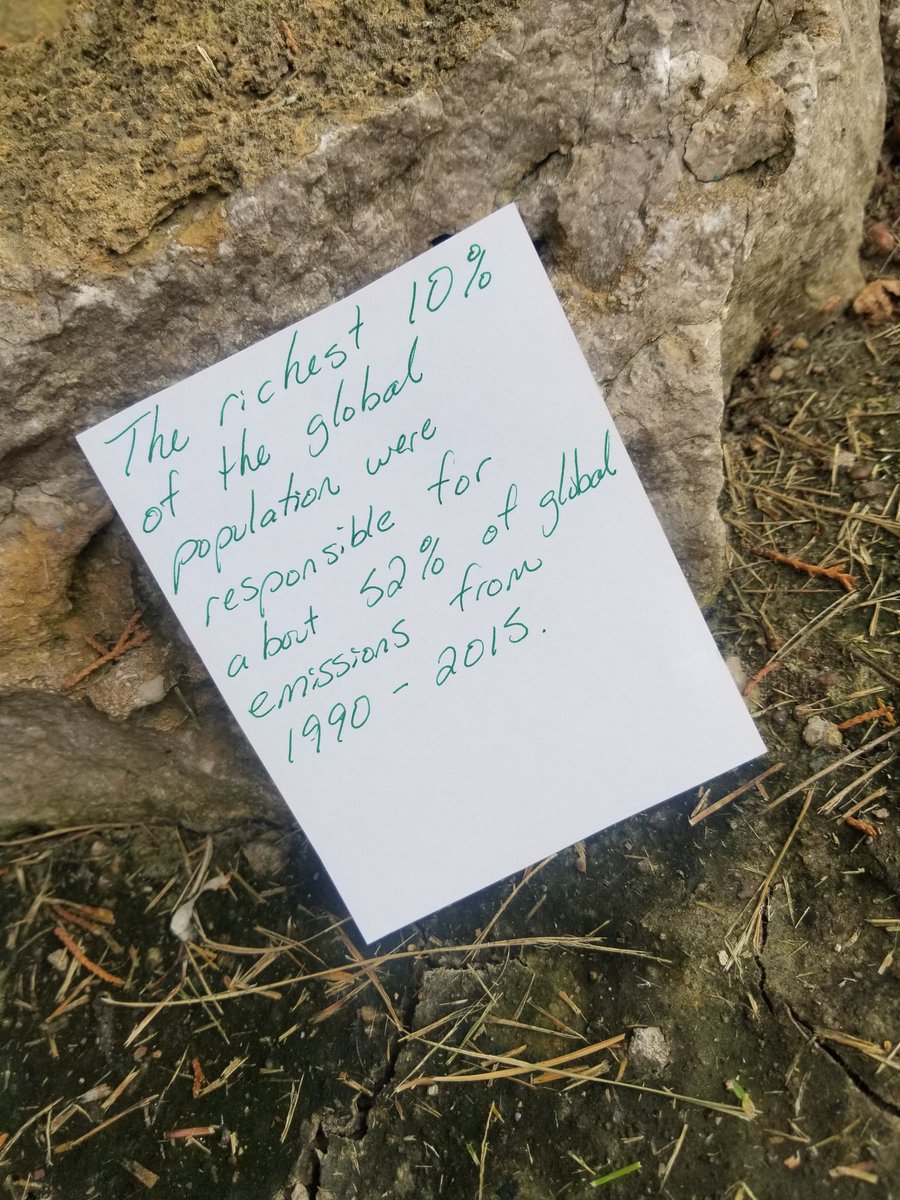 The richest 10%
of the global
population were
responsible for
about 52% of global
emissions from
1990 - 2015.